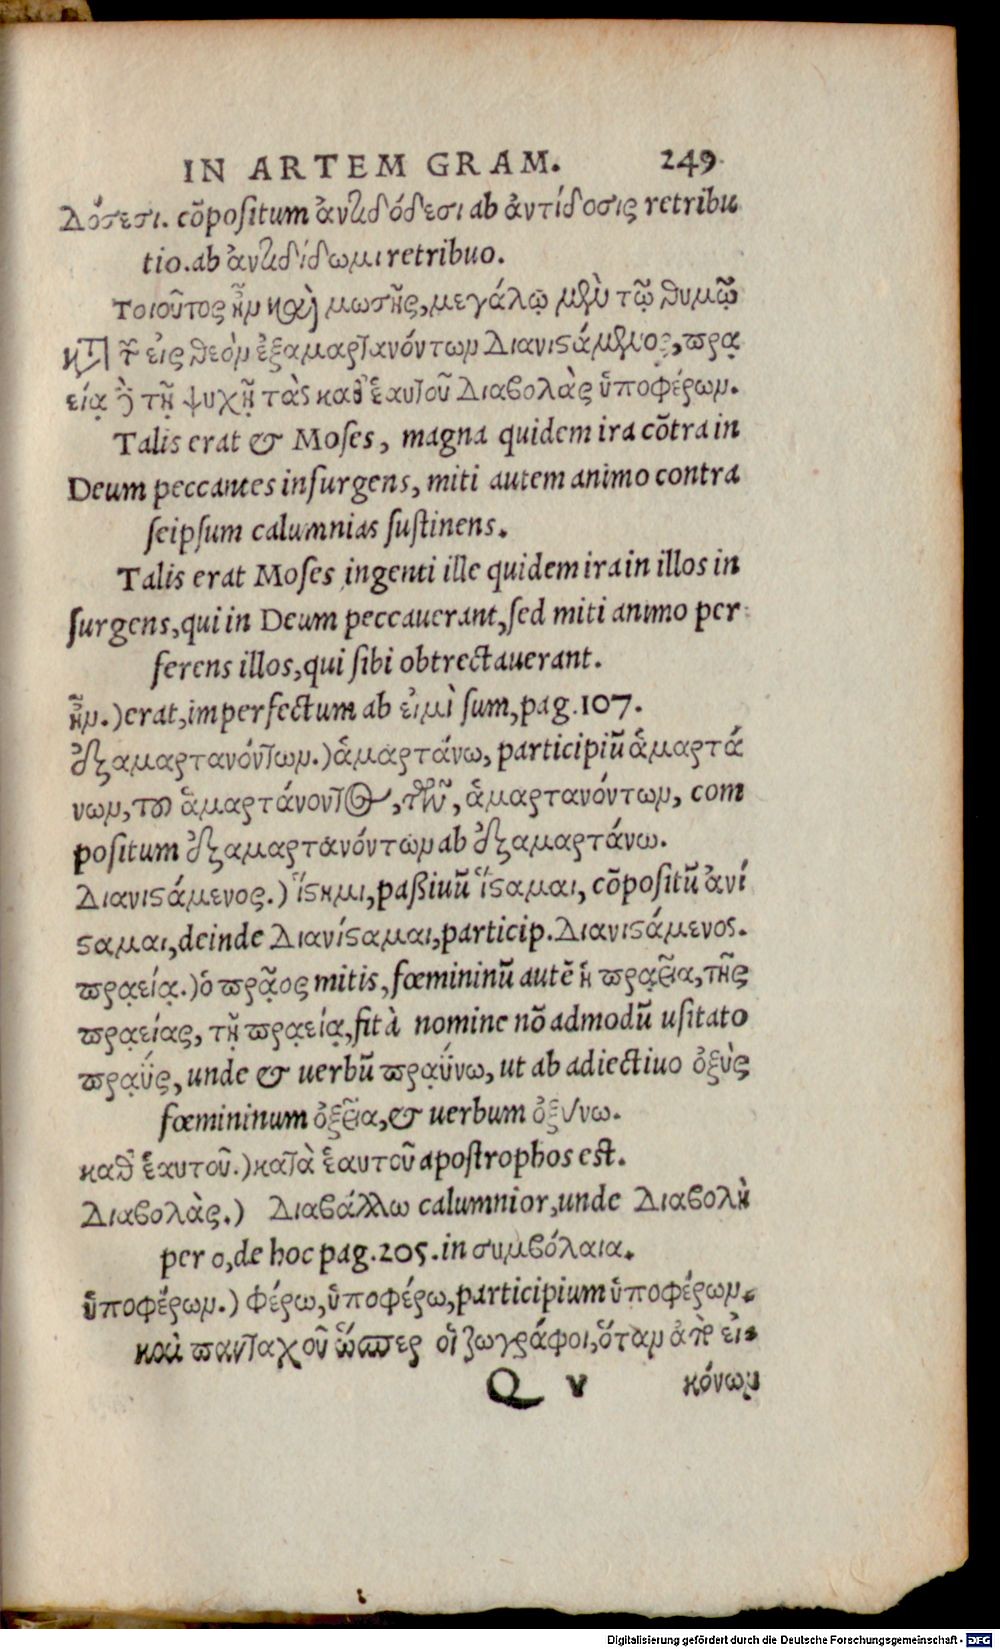 IN ARTEM GRAM. 249
Δόσεσι. cōpositum ἀντιδόδεσι ab ἀντίδοσις retribu
tio. ab ἀντιδίδωμι retribuo.
τοιοῦτος ἦν καὶ μωσῆς, μεγάλῳ μὲν τῷ θυμῷ
κτ τ εἰς θεὸν ἐξαμαρτανόντων διανιςάμενος, πρᾳ
είᾳ δὲ τῇ ψυχῇ τὰς καθ' ἑαυτοῦ διαβολὰς ὑποφέρων.
Talis erat & Moses, magna quidem ira cōtra in
Deum peccantes insurgens, miti autem animo contra
seipsum calumnias sustinens.
Talis erat Moses ingenti ille quidem ira in illos in
surgens, qui in Deum peccauerant, sed miti animo per
ferens illos, qui sibi obtrectauerant.
ἦν.) erat, imperfectum ab εἰμὶ sum, pag. 107.
ἐξαμαρτανόντων.) ἁμαρτάνω, participiū ἁμαρτά
νων, τοῦ ἁμαρτάνοντος, τῶν, ἁμαρτανόντων, com
positum ἐξαμαρτανόντων ab ἐξαμαρτάνω.
Διανιςάμενος.) ἵςημι, paßiuū ἵςαμαι, cōpositū ἀνί
ςαμαι, deinde Διανίςαμαι, particip. Διανιςάμενος.
πρᾳείᾳ.) ὁ πρᾷος mitis, fœmininū autē ἡ πρᾳεῖα, τῆς
πρᾳείας, τῇ πρᾳείᾳ, fit à nomine nō admodū usitato
πρᾳΰς, unde & uerbū πρᾳΰνω, ut ab adiectiuo ὀξὺς
fœmininum ὀξεῖα, & uerbum ὀξύνω.
καθ' ἑαυτοῦ.) κατὰ ἑαυτοῦ apostrophos est.
Διαβολὰς.) Διαβάλλω calumnior, unde Διαβολὴ
per o, de hoc pag. 205. in συμβόλαια.
ὑποφέρων.) φέρω, ὑποφέρω, participium ὑποφέρων.
καὶ πανταχοῦ ὥσπερ οἱ ζωγράφοι, ὅταν ἀπὸ εἰ-
Q v κόνων
Digitalisierung gefördert durch die Deutsche Forschungsgemeinschaft - DFG